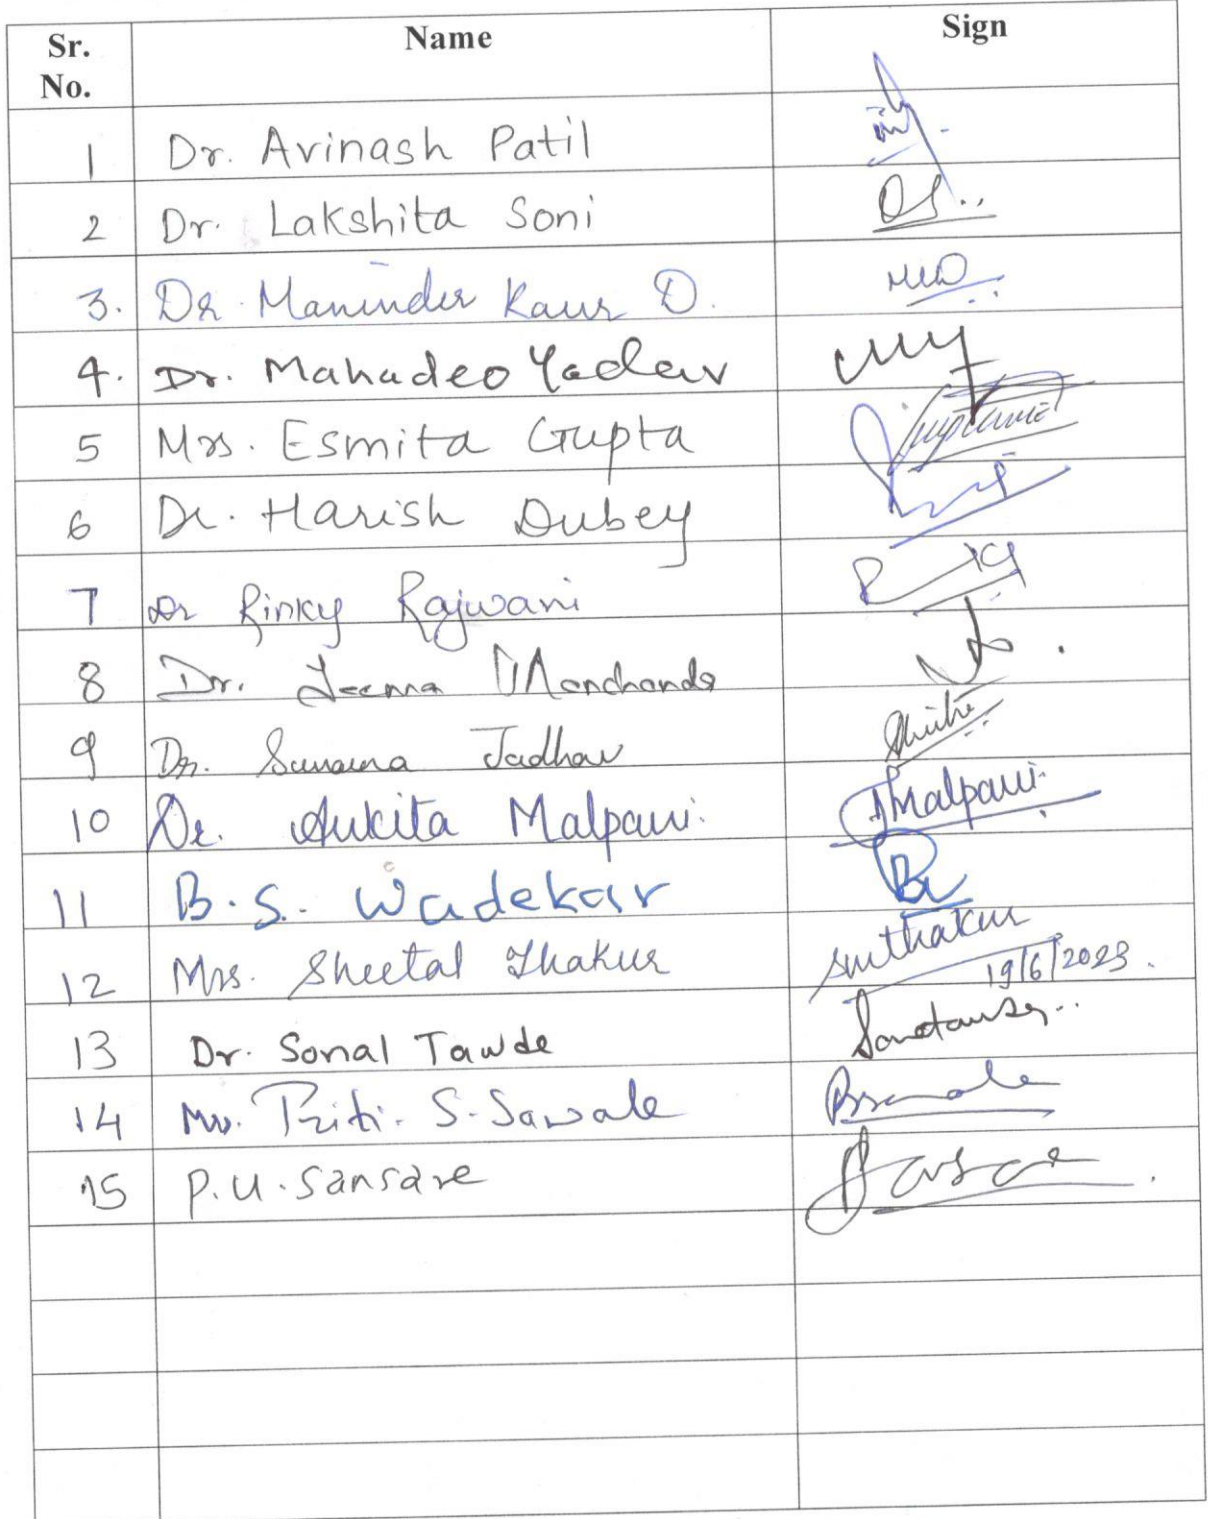 Sr. No. Name Sign
1 Dr. Avinash Patil
2 Dr. Lakshita Soni
3. Dr. Maninder Kaur D.
4. Dr. Mahadeo Yadav
5 Mrs. Esmita Gupta
6 Dr. Harish Dubey
7 Dr Rinky Rajwani
8 Dr. Manchanda
9 Dr. Jadhav
10 Dr. Ankita Malpani. Malpani
11 B.S. Wadekar
12 Mrs. Sheetal Thakur smthakur
19/6/2023.
13 Dr. Sonal Tawde
14 Mrs. Priti. S. Sawale
15 P.U. Sansare